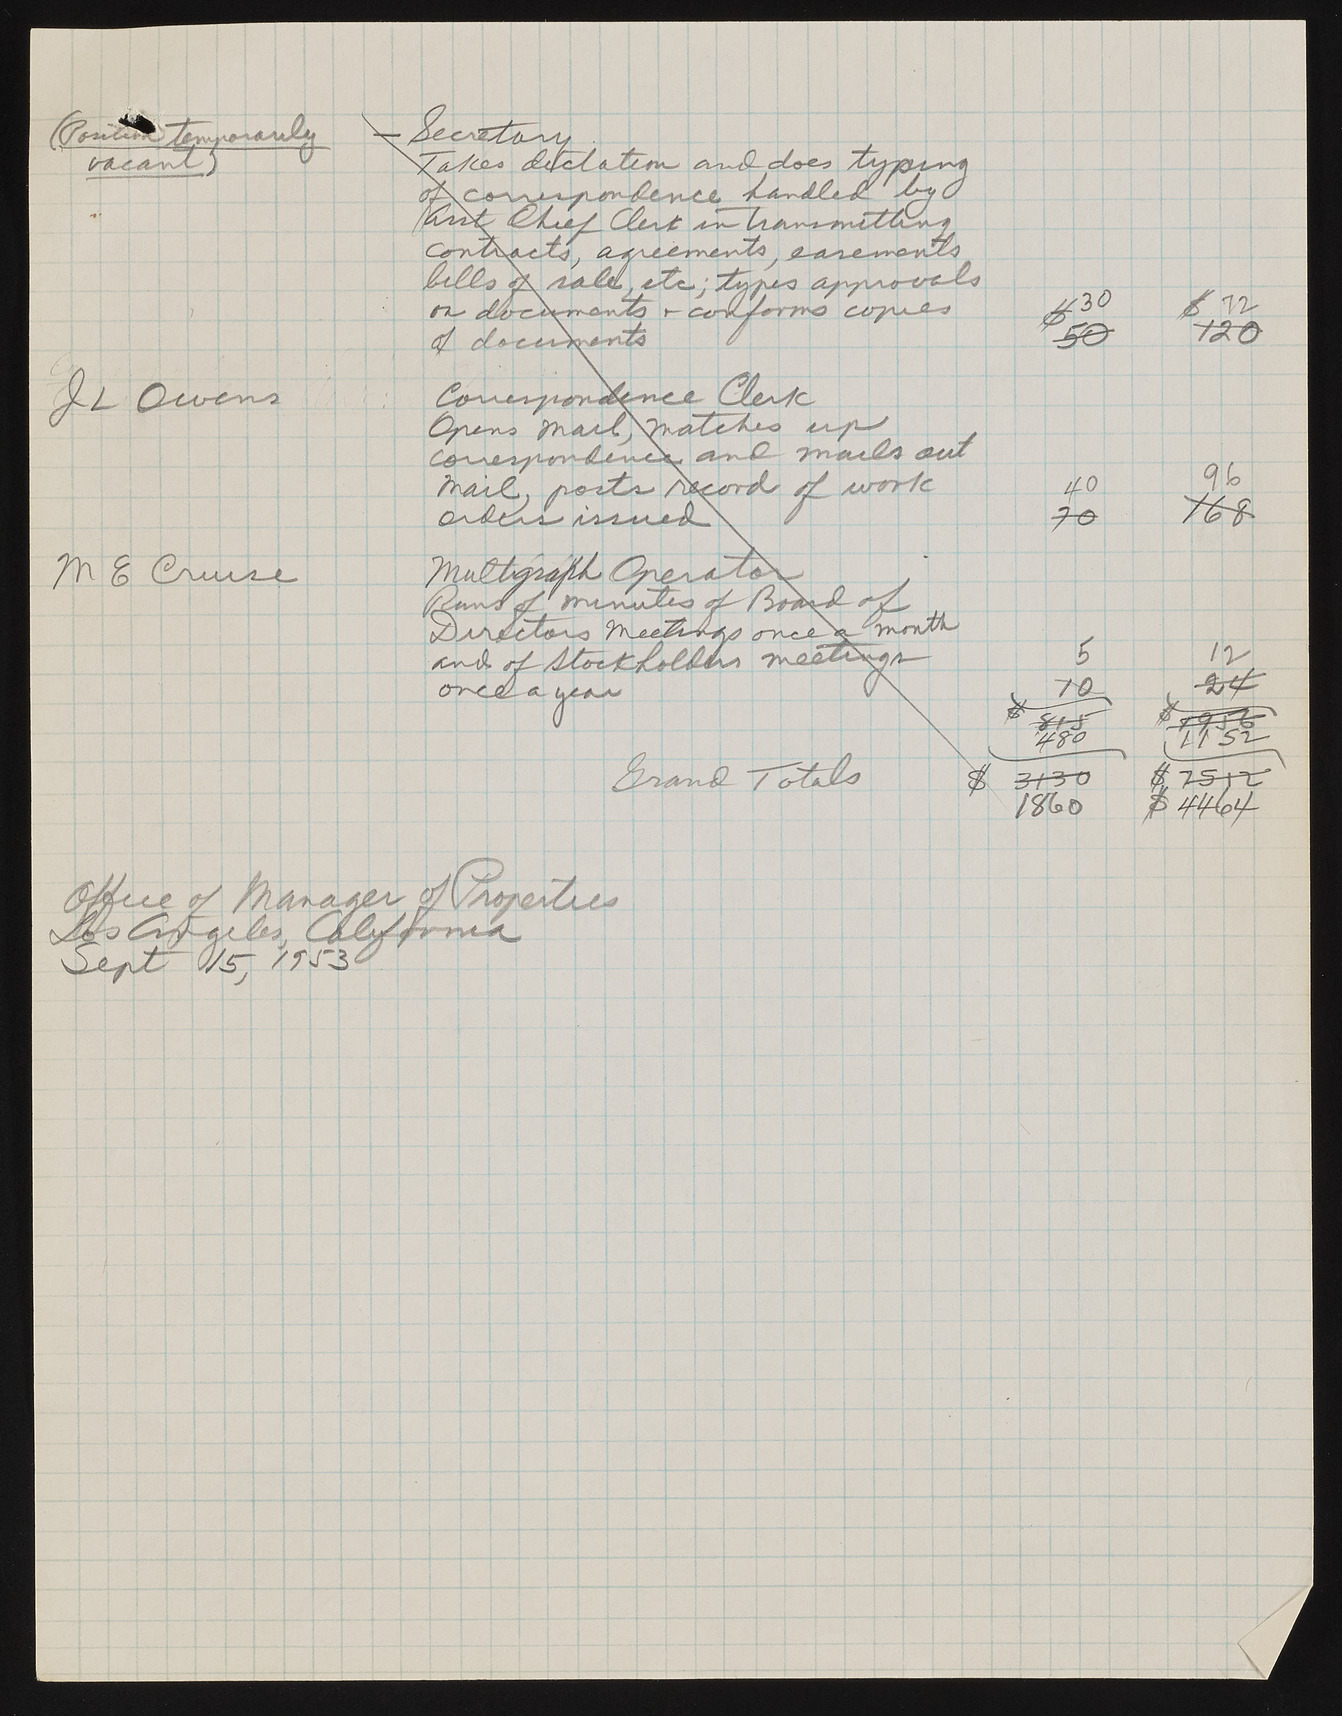 (Position temporarily
vacant)
— Secretary
Takes dictation and does typing
of correspondence handled by
Asst Chief Clerk in transmitting
contracts, agreements, easements
bills of sale, etc; types approvals
on documents & conforms copies
of documents
$30 $72
50 120
J L Owens Correspondence Clerk
Opens mail, matches up
correspondence and mails out
mail, posts record of work 40 96
orders issued 70 168
M E Cruise Multigraph Operator
Runs of minutes of Board of
Directors Meetings once a month
and of Stockholders meetings 5 12
once a year 10 24
$ 815 $ 1956
480 1152
Grand Totals $ 3130 $ 7512
1860 $ 4464
Office of Manager of Properties
Los Angeles, California
Sept 15, 1953